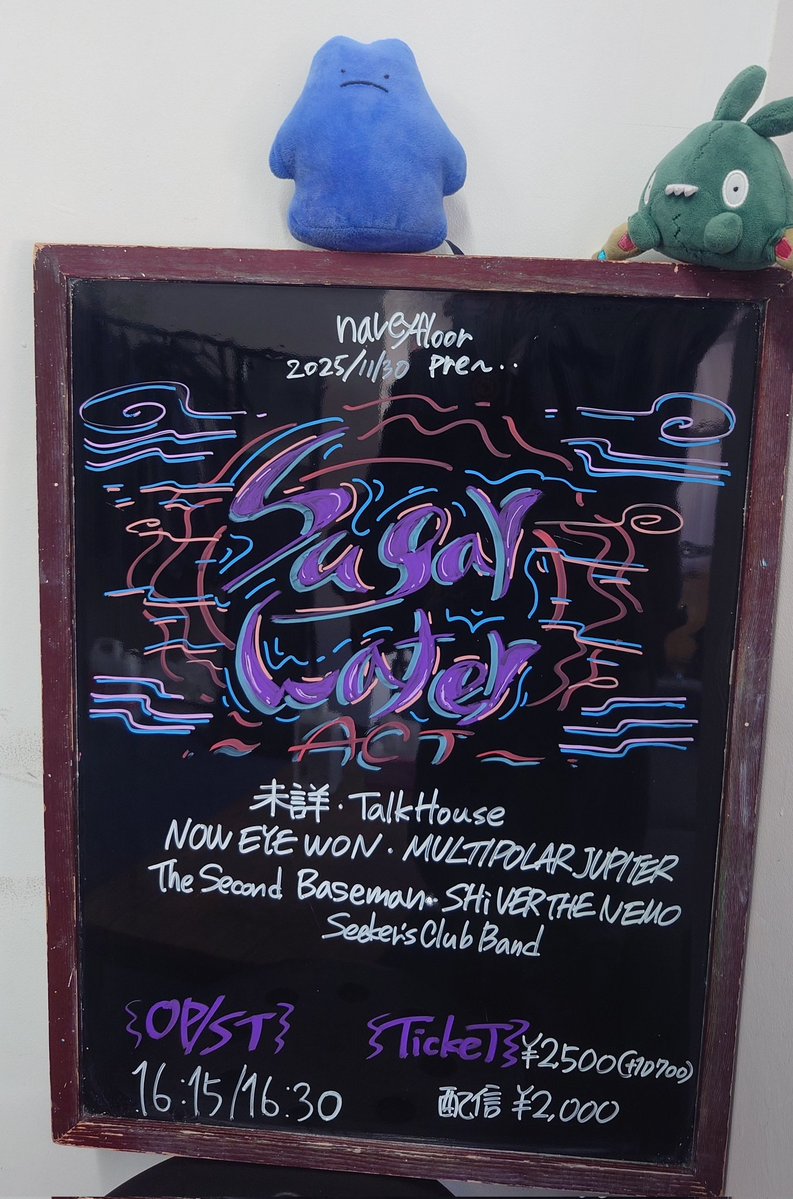 naveyfloor
2025/11/30 pre~..
Sugar
Water
ACT
未詳・TalkHouse
NOW EYE WON・MULTIPOLAR JUPITER
The Second Baseman・SHiVER THE NEMO
Seeker's Club Band
OP/ST
TickeT ¥2,500 (+1D700)
16:15/16:30
配信 ¥2,000